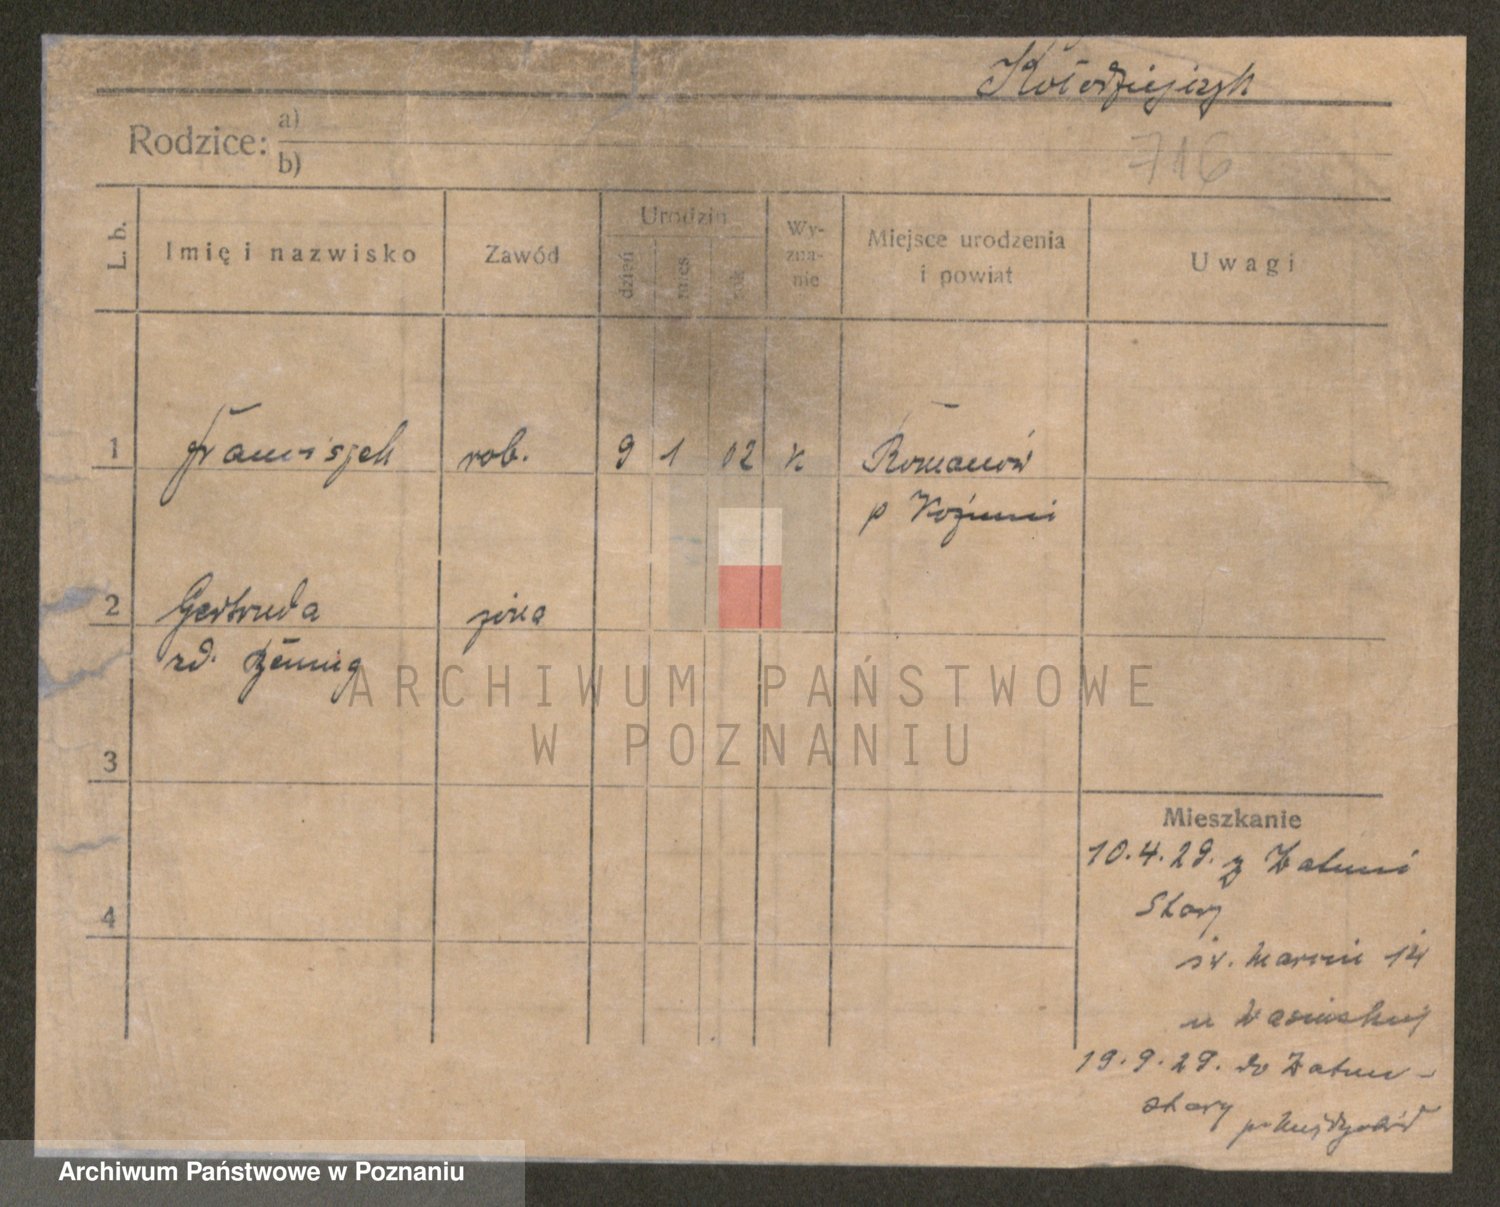 Kołodziejczyk
Rodzice: a)
b)
716
L. b.
Imię i nazwisko
Zawód
Urodzin
dzień
mies.
rok
Wy-
zna-
nie
Miejsce urodzenia
i powiat
Uwagi
1 Franciszek rob. 9 1 02 k Romanów
p Koźmin
2 Gertruda żona
zd. Hennig
3
4
ARCHIWUM PAŃSTWOWE
W POZNANIU
Mieszkanie
10.4.29. z Zatum
Stary
św. Marcin 14
u
19.9.29. do Zatum-
stary
p. Międzychód
Archiwum Państwowe w Poznaniu